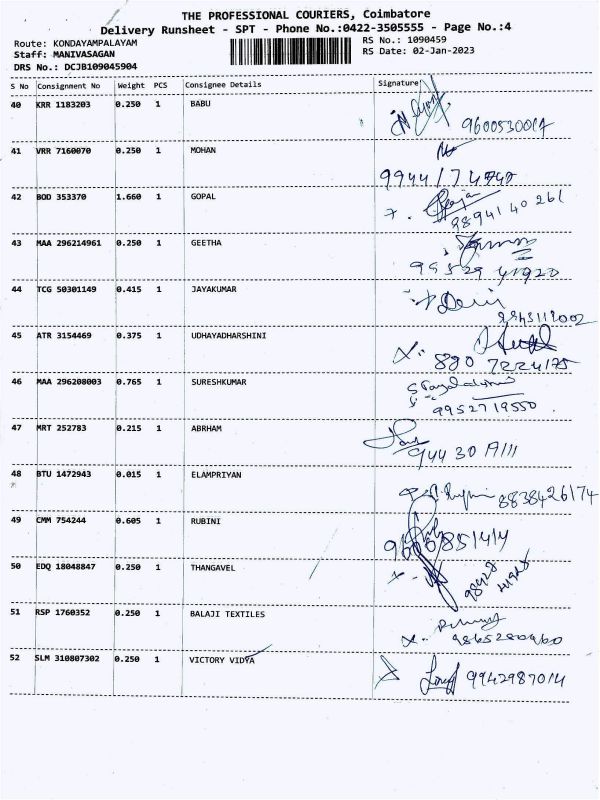 THE PROFESSIONAL COURIERS, Coimbatore
Delivery Runsheet - SPT - Phone No.:0422-3505555 - Page No.:4
Route: KONDAYAMPALAYAM RS No.: 1090459
Staff: MANIVASAGAN RS Date: 02-Jan-2023
DRS No.: DCJB109045904
S No Consignment No Weight PCS Consignee Details Signature
40 KRR 1183203 0.250 1 BABU
41 VRR 7160070 0.250 1 MOHAN
42 BOD 353370 1.660 1 GOPAL
9894140261
43 MAA 296214961 0.250 1 GEETHA
99529 41920
44 TCG 50301149 0.415 1 JAYAKUMAR
45 ATR 3154469 0.375 1 UDHAYADHARSHINI
46 MAA 296208003 0.765 1 SURESHKUMAR
9952719550
47 MRT 252783 0.215 1 ABRHAM
48 BTU 1472943 0.015 1 ELAMPRIYAN
8838426174
49 CMM 754244 0.605 1 RUBINI
50 EDQ 18048847 0.250 1 THANGAVEL
51 RSP 1760352 0.250 1 BALAJI TEXTILES
52 SLM 310807302 0.250 1 VICTORY VIDYA
9942987014